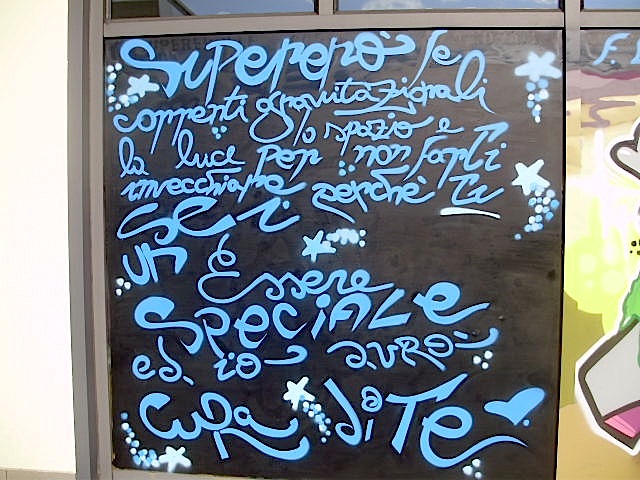 SUPERERÒ le
correnti gravitazionali
lo spazio e
la luce per non farti
invecchiare perchè TU
SEI
UN
Essere
SPECIALE
ed io avrò
CURA di TE
F.